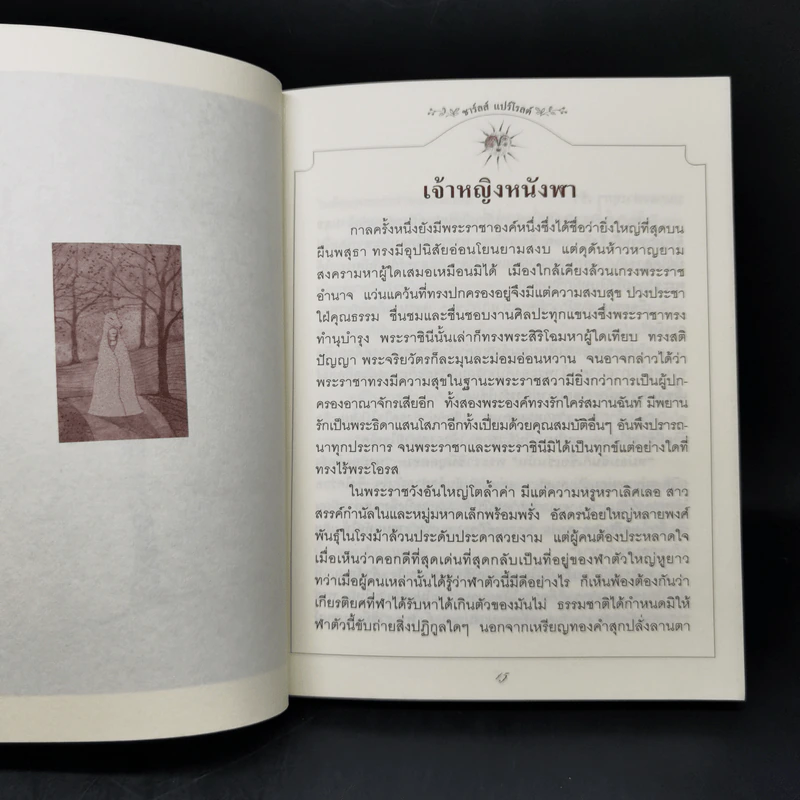 ชาร์ลส์ แปร์โรลต์
เจ้าหญิงหนังพา
กาลครั้งหนึ่งยังมีพระราชาองค์หนึ่งซึ่งได้ชื่อว่ายิ่งใหญ่ที่สุดบน
ผืนพสุธา ทรงมีอุปนิสัยอ่อนโยนยามสงบ แต่ดุดันห้าวหาญยาม
สงครามหาผู้ใดเสมอเหมือนมิได้ เมืองใกล้เคียงล้วนเกรงพระราช
อำนาจ แว่นแคว้นที่ทรงปกครองอยู่จึงมีแต่ความสงบสุข ปวงประชา
ใฝ่คุณธรรม ชื่นชมและชื่นชอบงานศิลปะทุกแขนงซึ่งพระราชาทรง
ทำนุบำรุง พระราชินีนั้นเล่าก็ทรงพระสิริโฉมหาผู้ใดเทียบ ทรงสติ
ปัญญา พระจริยวัตรก็ละมุนละม่อมอ่อนหวาน จนอาจกล่าวได้ว่า
พระราชาทรงมีความสุขในฐานะพระราชสวามียิ่งกว่าการเป็นผู้ปก-
ครองอาณาจักรเสียอีก ทั้งสองพระองค์ทรงรักใคร่สมานฉันท์ มีพยาน
รักเป็นพระธิดาแสนโสภาอีกทั้งเปี่ยมด้วยคุณสมบัติอื่นๆ อันพึงปรารถ-
นาทุกประการ จนพระราชาและพระราชินีมิได้เป็นทุกข์แต่อย่างใดที่
ทรงไร้พระโอรส
ในพระราชวังอันใหญ่โตล้ำค่า มีแต่ความหรูหราเลิศเลอ สาว
สรรค์กำนัลในและหมู่มหาดเล็กพร้อมพรั่ง อัสดรน้อยใหญ่หลายพงศ์
พันธุ์ในโรงม้าล้วนประดับประดาสวยงาม แต่ผู้คนต้องประหลาดใจ
เมื่อเห็นว่าคอกดีที่สุดเด่นที่สุดกลับเป็นที่อยู่ของฬาตัวใหญ่หูยาว
ทว่าเมื่อผู้คนเหล่านั้นได้รู้ว่าฬาตัวนี้มีดีอย่างไร ก็เห็นพ้องต้องกันว่า
เกียรติยศที่ฬาได้รับหาได้เกินตัวของมันไม่ ธรรมชาติได้กำหนดมิให้
ฬาตัวนี้ขับถ่ายสิ่งปฏิกูลใดๆ นอกจากเหรียญทองคำสุกปลั่งลานตา